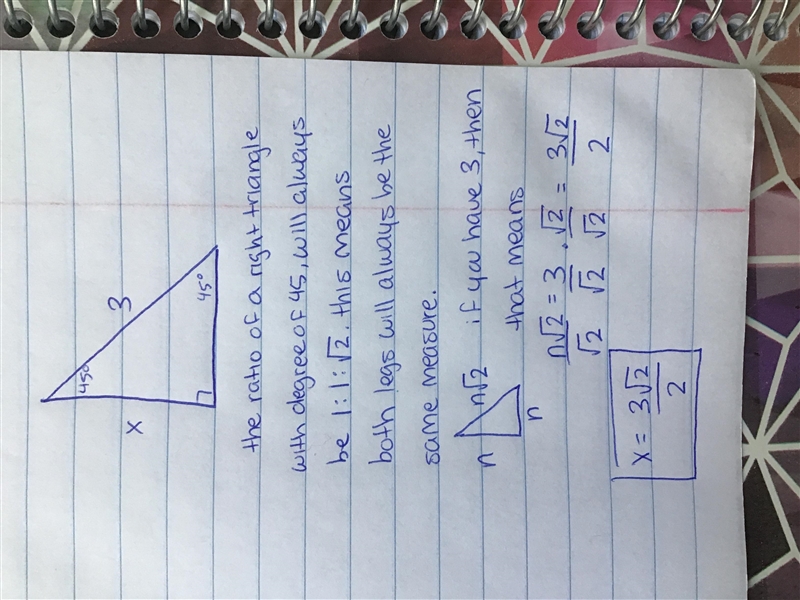 45°
3
x
45°
the ratio of a right triangle
with degree of 45, will always
be 1:1:√2. this means
both legs will always be the
same measure.
n n√2 if you have 3, then
n that means
n√2 = 3 · √2 = 3√2
√2 √2 √2 2
x = 3√2
2